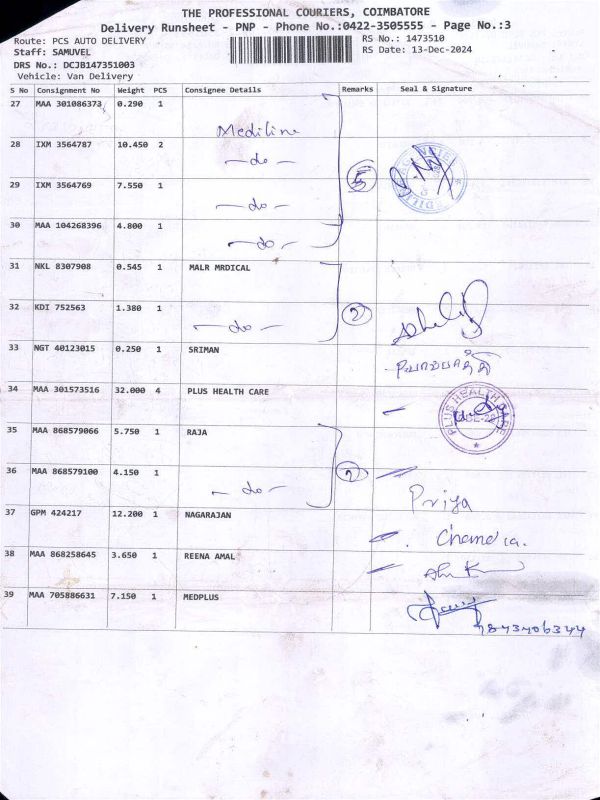 THE PROFESSIONAL COURIERS, COIMBATORE
Delivery Runsheet - PNP - Phone No.:0422-3505555 - Page No.:3
Route: PCS AUTO DELIVERY
RS No.: 1473510
Staff: SAMUVEL
RS Date: 13-Dec-2024
DRS No.: DCJB147351003
Vehicle: Van Delivery
S No Consignment No Weight PCS Consignee Details Remarks Seal & Signature
27 MAA 301086373 0.290 1 Mediline
28 IXM 3564787 10.450 2 -do-
29 IXM 3564769 7.550 1 -do- 5
30 MAA 104268396 4.800 1 -do-
31 NKL 8307908 0.545 1 MALR MRDICAL
32 KDI 752563 1.380 1 -do- 2
33 NGT 40123015 0.250 1 SRIMAN
34 MAA 301573516 32.000 4 PLUS HEALTH CARE PLUS HEALTH CARE
35 MAA 868579066 5.750 1 RAJA
36 MAA 868579100 4.150 1 -do- 2 Priya
37 GPM 424217 12.200 1 NAGARAJAN
38 MAA 868258645 3.650 1 REENA AMAL
39 MAA 705886631 7.150 1 MEDPLUS